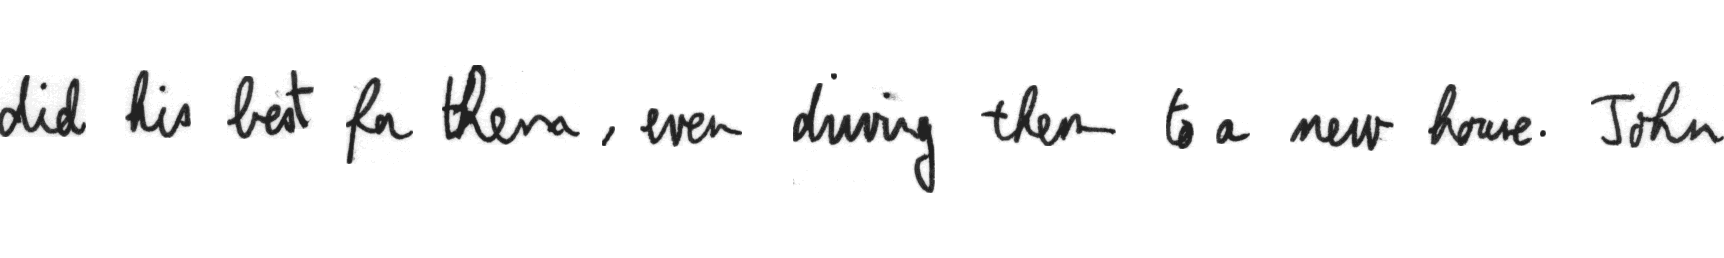 did his best for them, even driving them to a new house. John